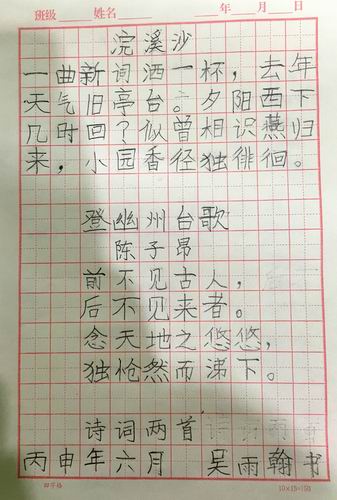 班级 姓名 年 月 日
浣溪沙
一曲新词酒一杯，去年
天气旧亭台。夕阳西下
几时回？似曾相识燕归
来，小园香径独徘徊。
登幽州台歌
陈子昂
前不见古人，
后不见来者。
念天地之悠悠，
独怆然而涕下。
诗词两首
丙申年六月 吴雨翰书
10×15=150